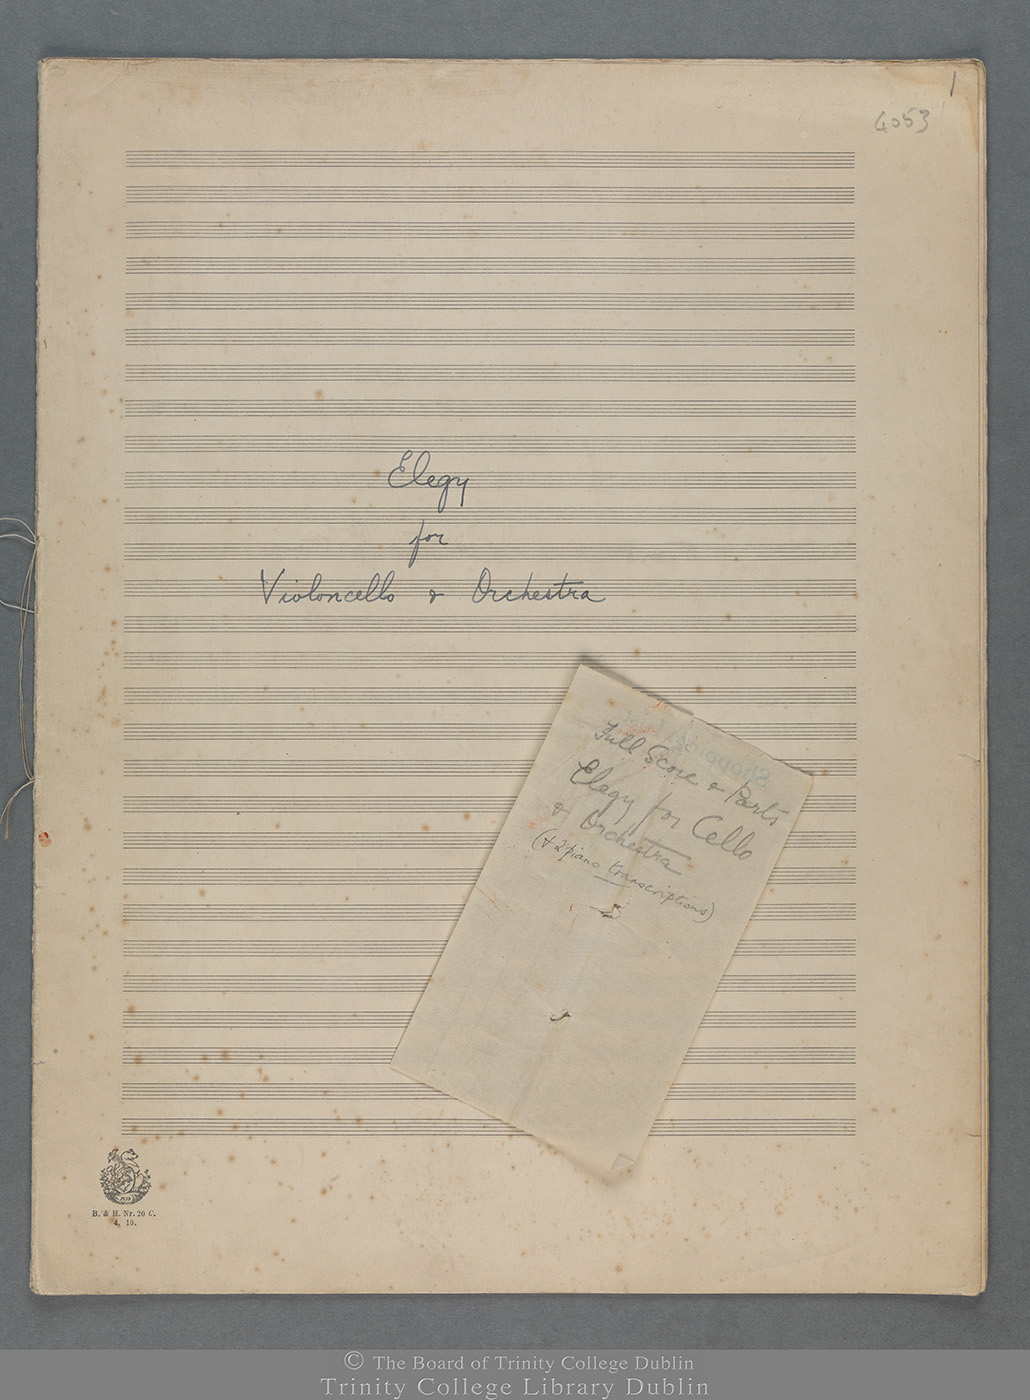 1
4053
Elegy
for
Violoncello & Orchestra
Full Score & Parts
Elegy for Cello
& Orchestra
(+ 2 piano transcriptions)
B. & H. Nr. 20 C.
4. 10.
© The Board of Trinity College Dublin
Trinity College Library Dublin